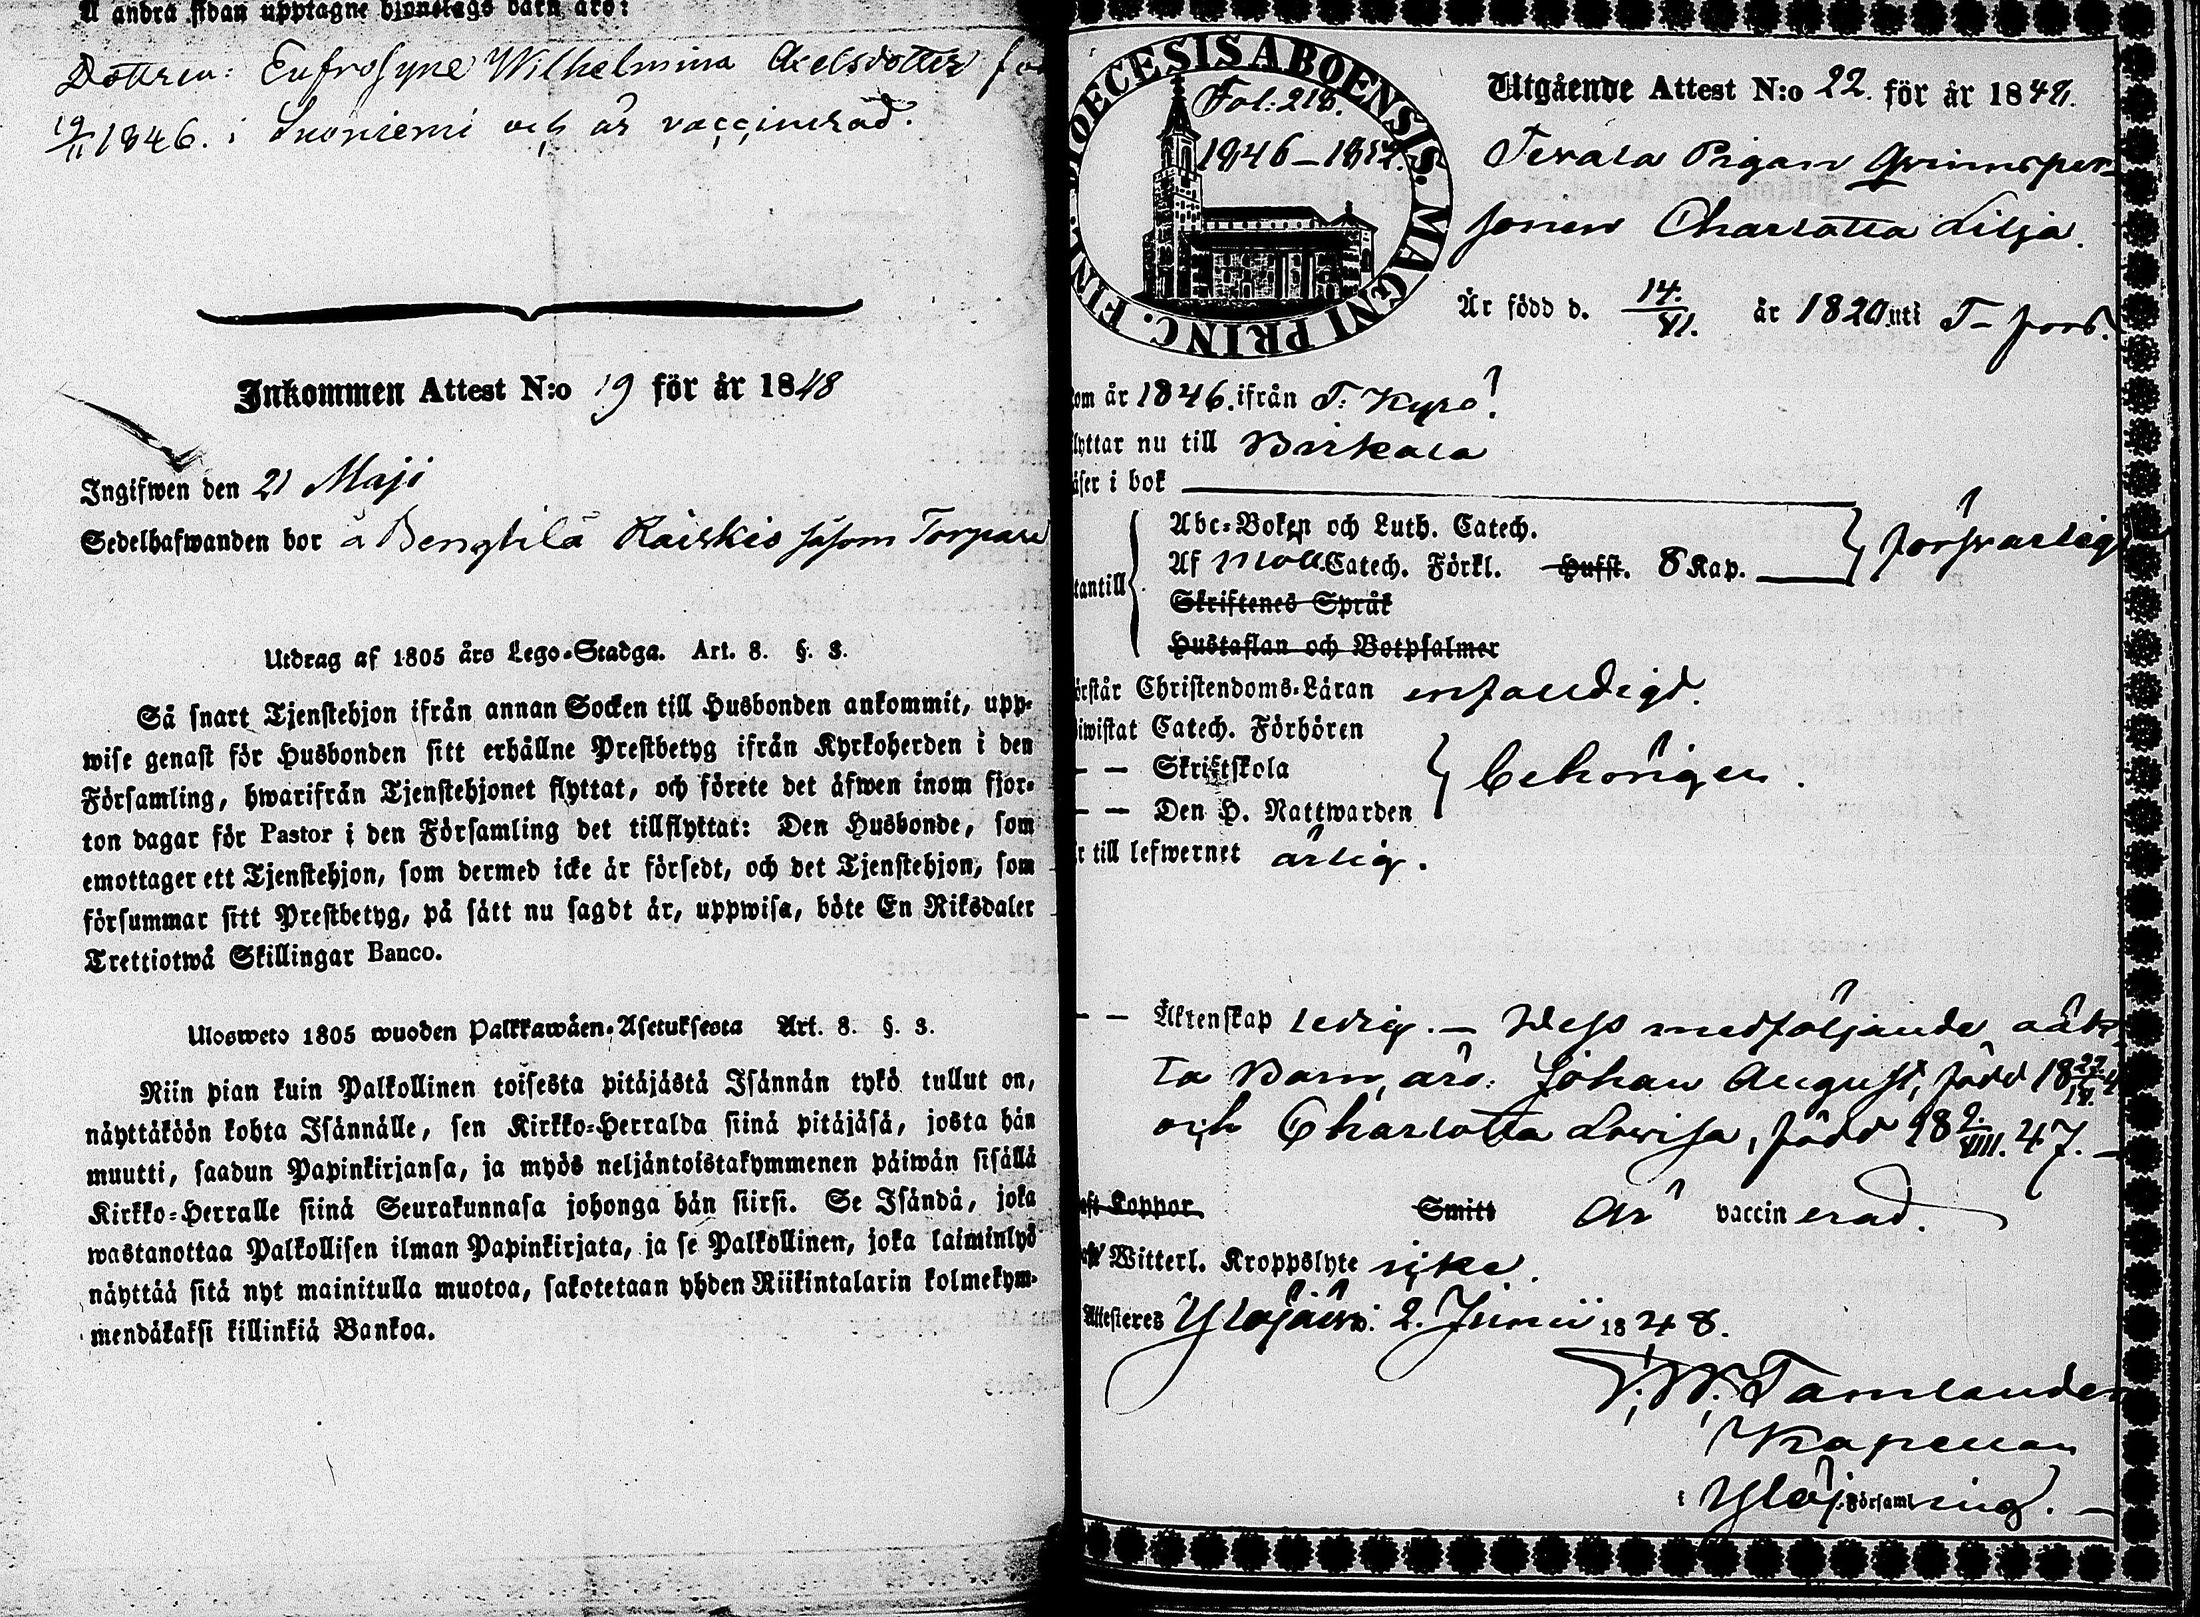 Å andra sidan upptagne hjonelags barn äro:
Dottren: Eufrosyne Wilhelmina Axelsdotter
19/11 1846. i Suoniemi och är vaccinerad.
Inkommen Attest N:o 19 för år 1848
Ingifwen den 21 Maji
Sedelhafwanden bor å Bengtilä Raiskio såsom Torpare
Utdrag af 1805 års Lego-Stadga. Art. 8. §. 3.
Så snart Tjenstehjon ifrån annan Socken till Husbonden ankommit, upp-
wise genast för Husbonden sitt erhållne Prestbetyg ifrån Kyrkoherden i den
Församling, hwarifrån Tjenstehjonet flyttat, och förete det äfwen inom fjor-
ton dagar för Pastor i den Församling det tillflyttat: Den Husbonde, som
emottager ett Tjenstehjon, som dermed icke är försedt, och det Tjenstehjon, som
försummar sitt Prestbetyg, på sätt nu sagdt är, uppwisa, böte En Riksdaler
Trettiotwå Skillingar Banco.
Ulosweto 1805 wuoden Palkkawäen-Asetuksesta Art. 8. §. 3.
Niin pian kuin Palkollinen toisesta pitäjästä Isännän tykö tullut on,
näyttäköön kohta Isännälle, sen Kirkko-Herralda siinä pitäjäsä, josta hän
muutti, saadun Papinkirjansa, ja myös neljäntoistakymmenen päiwän sisällä
Kirkko-Herralle siinä Seurakunnasa johonga hän siirsi. Se Isändä, joka
wastanottaa Palkollisen ilman Papinkirjata, ja se Palkollinen, joka laiminlyö
näyttää sitä nyt mainitulla muotoa, sakotetaan yhden Riikintalarin kolmekym-
mendäkaksi killinkiä Bankoa.
DIOECESIS ABOENSIS. MAGNI PRINC. FINL.
Fol: 218.
1846–1852.
Utgående Attest N:o 22. för år 1848.
Pigan Qvinnsper-
sonen Charlotta Lilja.
Är född d. 14./VI. år 1820 uti T– fors.
om år 1846. ifrån T: Kyro!
lyttar nu till Birkala
äser i bok
Abc-Boken och Luth. Catech.
Af Moll. Catech. Förkl. Husst. 8 Kap. försvarligt
tantill
Skriftenes Språk
Hustaflan och Botpsalmer
örstår Christendoms-Läran enfaldigt.
iwistat Catech. Förhören
– – Skriftskola behörigen.
– – Den H. Nattwarden
r till lefwernet ärlig.
– – Äktenskap ledig. – Dess medföljande oäk-
ta Barn, äro: Johan August, född 18
och Charlotta Lovisa, född 18 2/VIII. 47. –
aft Koppor Smitt är vaccinerad.
Witterl. Kroppslyte icke.
Attesteres Ylöjärvi: 2. Junii 1848.
Tamlander
Kapellan
i Ylöj. Församling. –